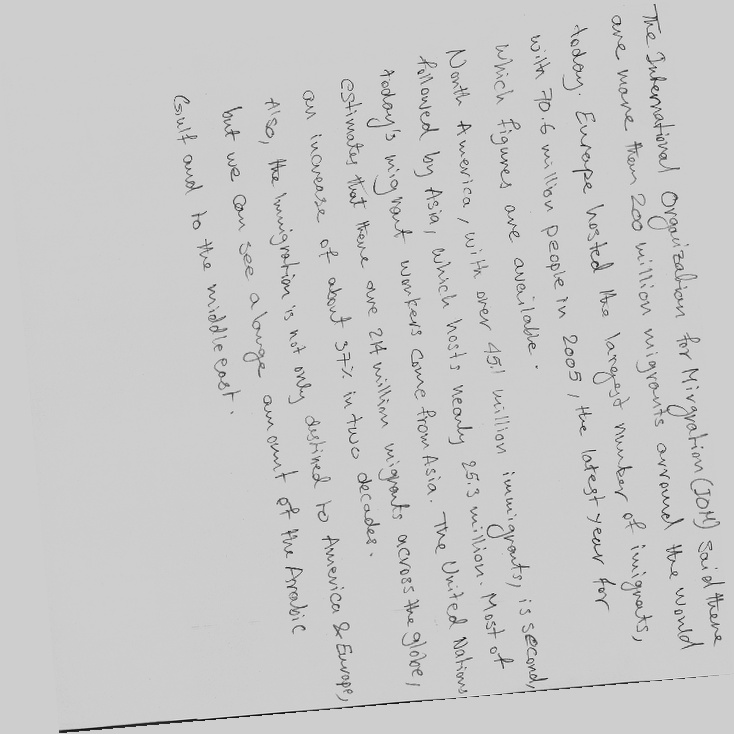 The International Organization for Mirgration (IOM) said there
are more than 200 million migrants arround the world
today. Europe hosted the largest number of imigrants,
with 70.6 million people in 2005, the latest year for
which figures are available.
North America, with over 45.1 million immigrants, is second,
followed by Asia, which hosts nearly 25.3 million. Most of
today's migrant workers come from Asia. The United Nations
estimates that there are 214 million migrants across the globe,
an increase of about 37% in two decades.
Also, the Immigration is not only distined to America & Europe,
but we can see a large amount of the Arabic
Gulf and to the middle east.